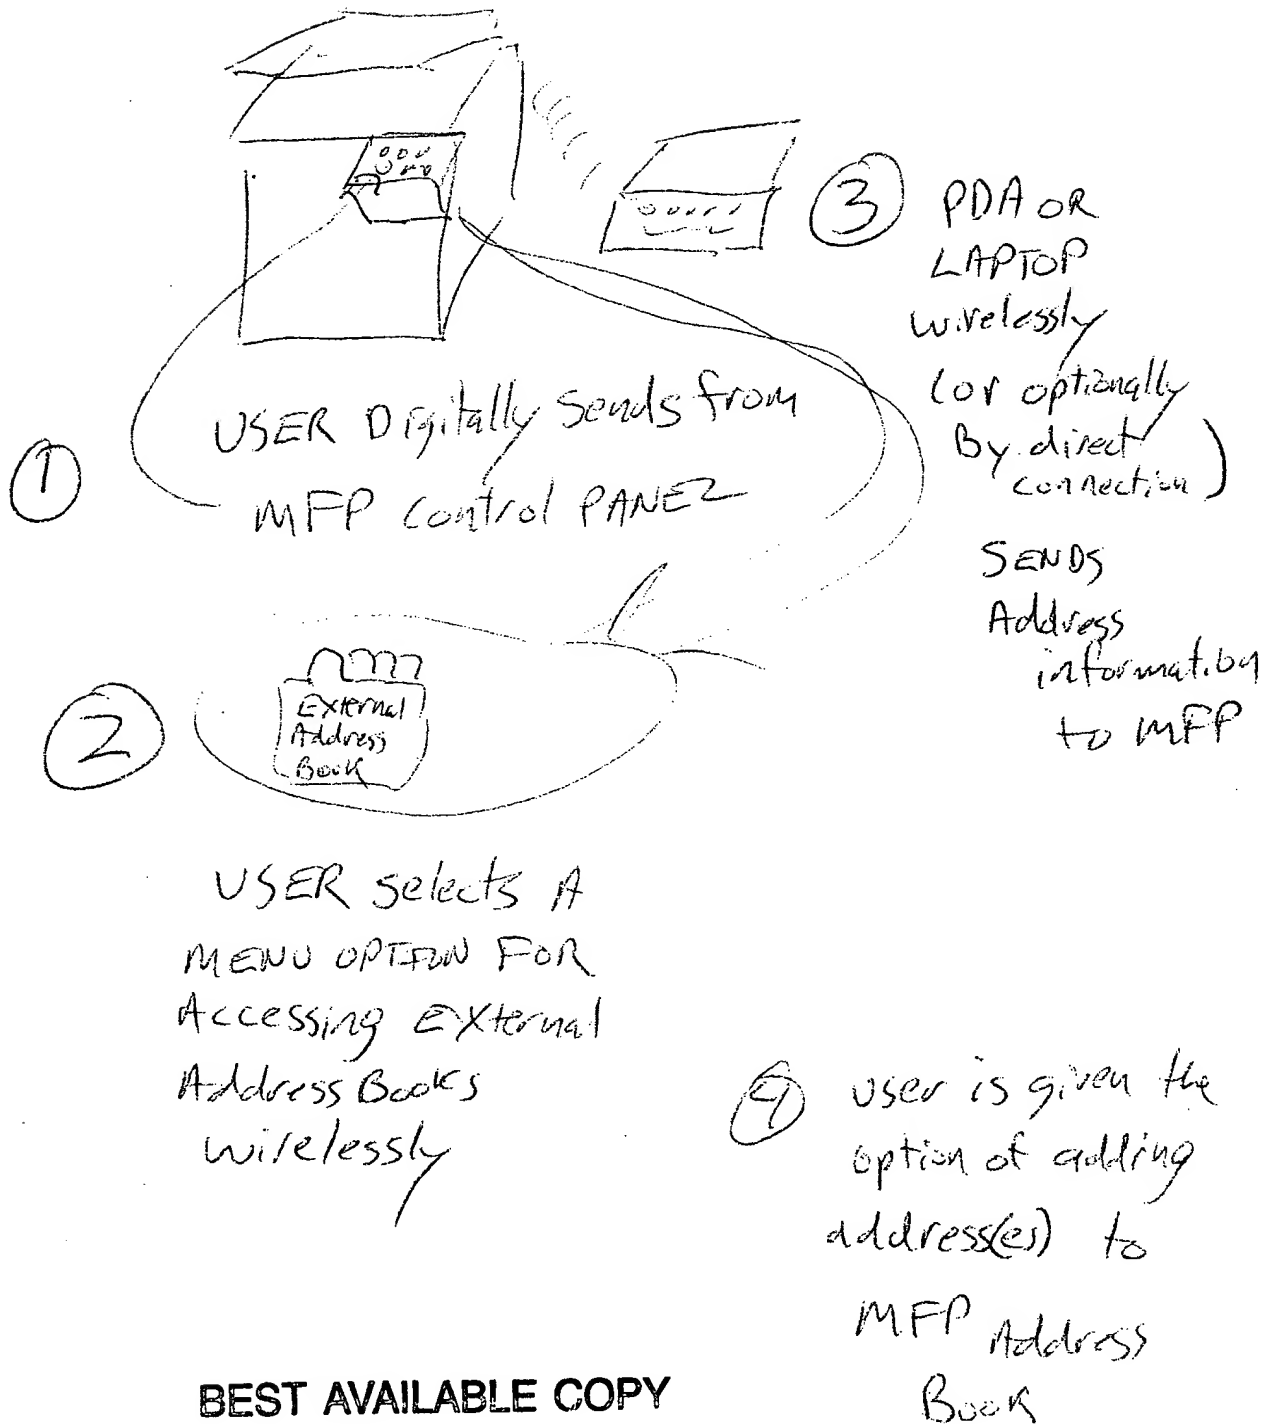 1
USER Digitally Sends from
MFP control PANEL
2
External
Address
Book
USER selects A
MENU OPTION FOR
Accessing External
Address Books
wirelessly
3
PDA OR
LAPTOP
wirelessly
(or optionally
By direct
connection)
SENDS
Address
information
to MFP
4
user is given the
option of adding
address(es) to
MFP Address
Book
BEST AVAILABLE COPY